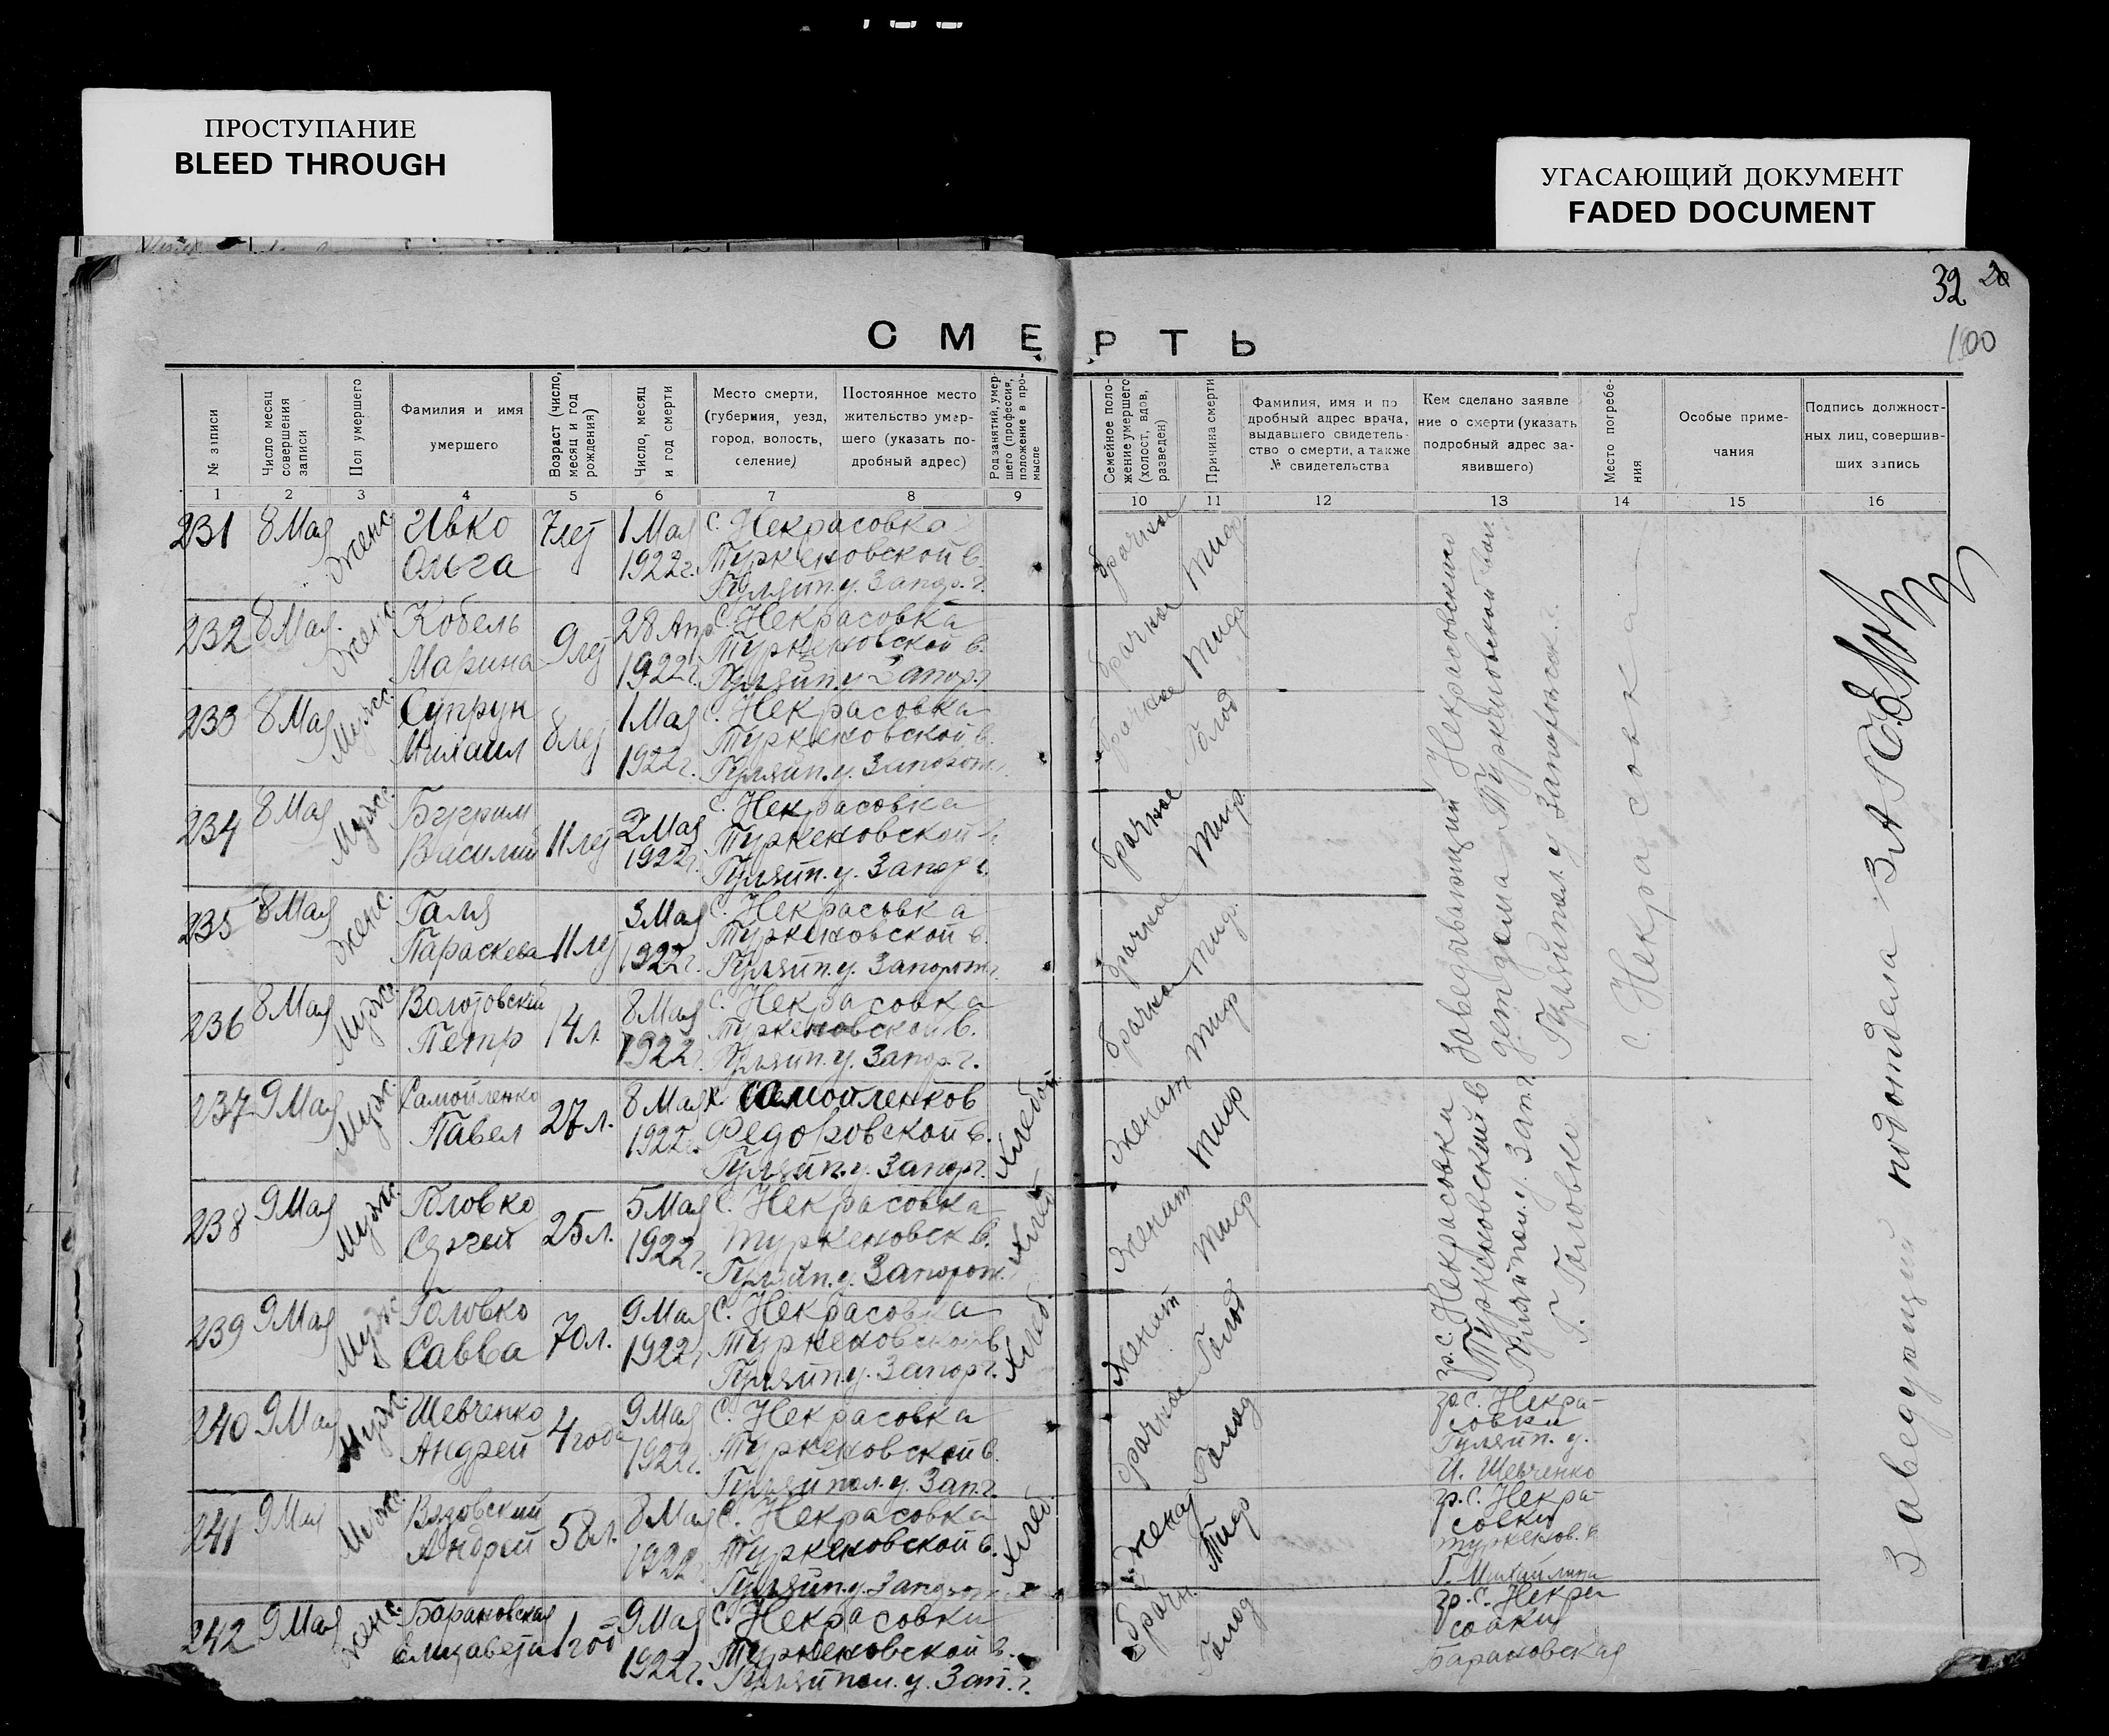 ПРОСТУПАНИЕ
BLEED THROUGH
УГАСАЮЩИЙ ДОКУМЕНТ
FADED DOCUMENT
32
100
СМЕРТЬ
№ записи
Число месяц совершения записи
Пол умершего
Фамилия и имя умершего
Возраст (число, месяц и год рождения)
Число, месяц и год смерти
Место смерти, (губерния, уезд, город, волость, селение)
Постоянное место жительство умершего (указать подробный адрес)
Род занятий, умершего (профессия, положение в промысле
Семейное положение умершего (холост, вдов, разведен)
Причина смерти
Фамилия, имя и подробный адрес врача, выдавшего свидетельство о смерти, а также № свидетельства
Кем сделано заявление о смерти (указать подробный адрес заявившего)
Место погребения
Особые примечания
Подпись должностных лиц, совершивших запись
1 2 3 4 5 6 7 8 9 10 11 12 13 14 15 16
231 8 Мая Женс. Ивко Ольга 7 лет 1 Мая 1922г. с. Некрасовка Туркеновской в. Гуляйп. у. Запор. г. брачное Тиф
232 8 Мая. Женс. Кобель Марина 9 лет 28 Апр 1922г. С. Некрасовка Туркеновской в. Гуляйп. у Запор. г брачное Тиф
233 8 Мая Мужс. Супрун Михаил 8 лет 1 Мая 1922г. с. Некрасовка Туркеновской в. Гуляйп. у. Запорож. брачное Голод
234 8 Мая Мужс. Бугрим Василий 11 лет 2 Мая 1922г. с. Некрасовка Туркеновской Гуляйп. у. Запор г. брачное Тиф.
235 8 Мая Женс. Галя Параскева 11 лет 3 Мая 1922г. с. Некрасовка Туркеновской в. Гуляйп. у. Запорож. брачное Тиф.
236 8 Мая Мужс. Петр 14 л. 8 Мая 1922г. с. Некрасовка Туркеновской в. Гуляйп. у. Запор. г. брачное Тиф
Заведывающий Некрасовского
детдома Туркеновской вол.
Гуляйпол. у Запорожск. г.
с. Некрасовка
237 9 Мая Мужс. Самойленко Павел 27 л. 8 Мая 1922г. х. Самойленков Федоровской в. Гуляйп. у. Запор г. Хлебоп. Женат Тиф
238 9 Мая Мужс. Головко Сергей 25 л. 5 Мая 1922г. С. Некрасовка Туркеновск в. Гуляйп. у. Запорож. Хлеб Женат Тиф
239 9 Мая Мужс. Головко Савва 70 л. 9 Мая 1922г С. Некрасовка Туркеновской в Гуляйп. у. Запор г. Хлеб Женат Голод
гр. с. Некрасовки
Туркеновской в
Гуляйпол. у. Зап. г.
Г. Головко
240 9 Мая Мужс. Шевченко Андрей 4 года 9 Мая 1922г. С. Некрасовка Туркеновской в. Гуляйпол. у. Зап. г. брачное Голод гр. с. Некрасовки Гуляйп. у. И. Шевченко
241 9 Мая Мужс. Андрей 58 л. 8 Мая 1922г С. Некрасовка Туркеновской в. Гуляйп. у. Запорож. Хлеб. Женат Тиф гр. с. Некрасовки Туркенов. в.
242 9 Мая Женс. Барановская Елизавета 1 год 9 Мая 1922г. С. Некрасовки Туркеновской в. Гуляйпол. у. Зап. г. брачн. Голод гр. с. Некрасовки Барановская
Заведующий подотдела ЗАГС